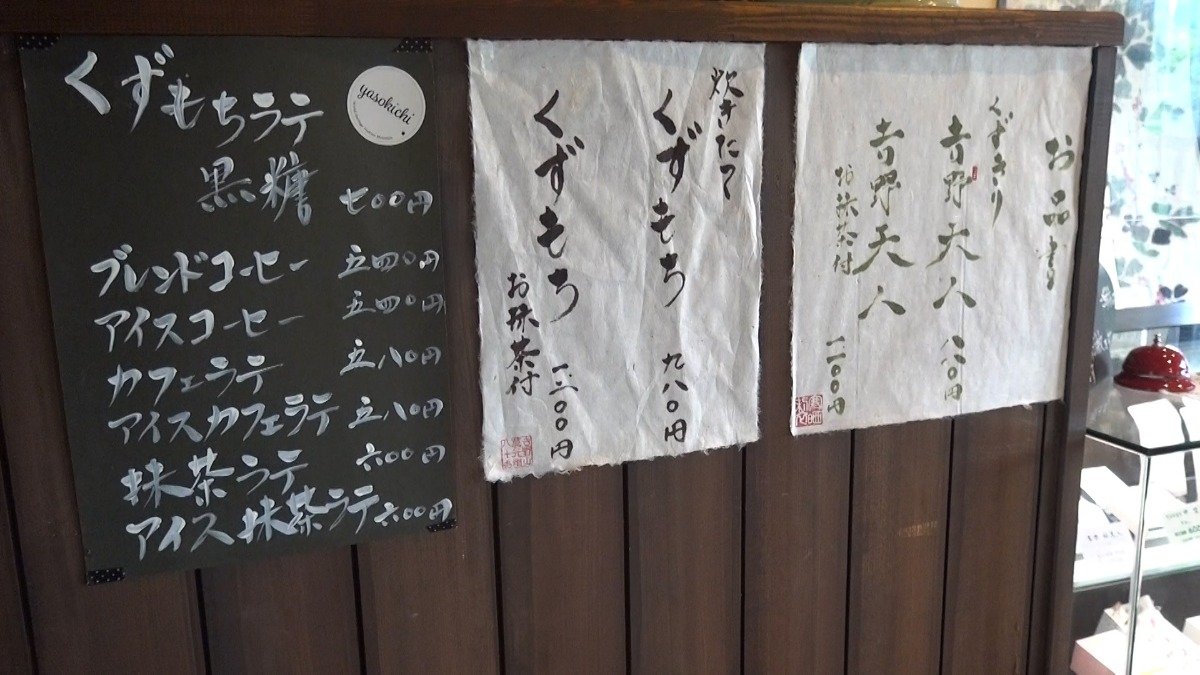 くずもちラテ
yasokichi
黒糖 七〇〇円
ブレンドコーヒー 五四〇円
アイスコーヒー 五四〇円
カフェラテ 五八〇円
アイスカフェラテ 五八〇円
抹茶ラテ 六〇〇円
アイス抹茶ラテ 六〇〇円
炊きたて
くずもち 九八〇円
くずもち
お抹茶付 一三〇〇円
お品書
くずきり
吉野天人
吉野天人
お抹茶付 一一〇〇円